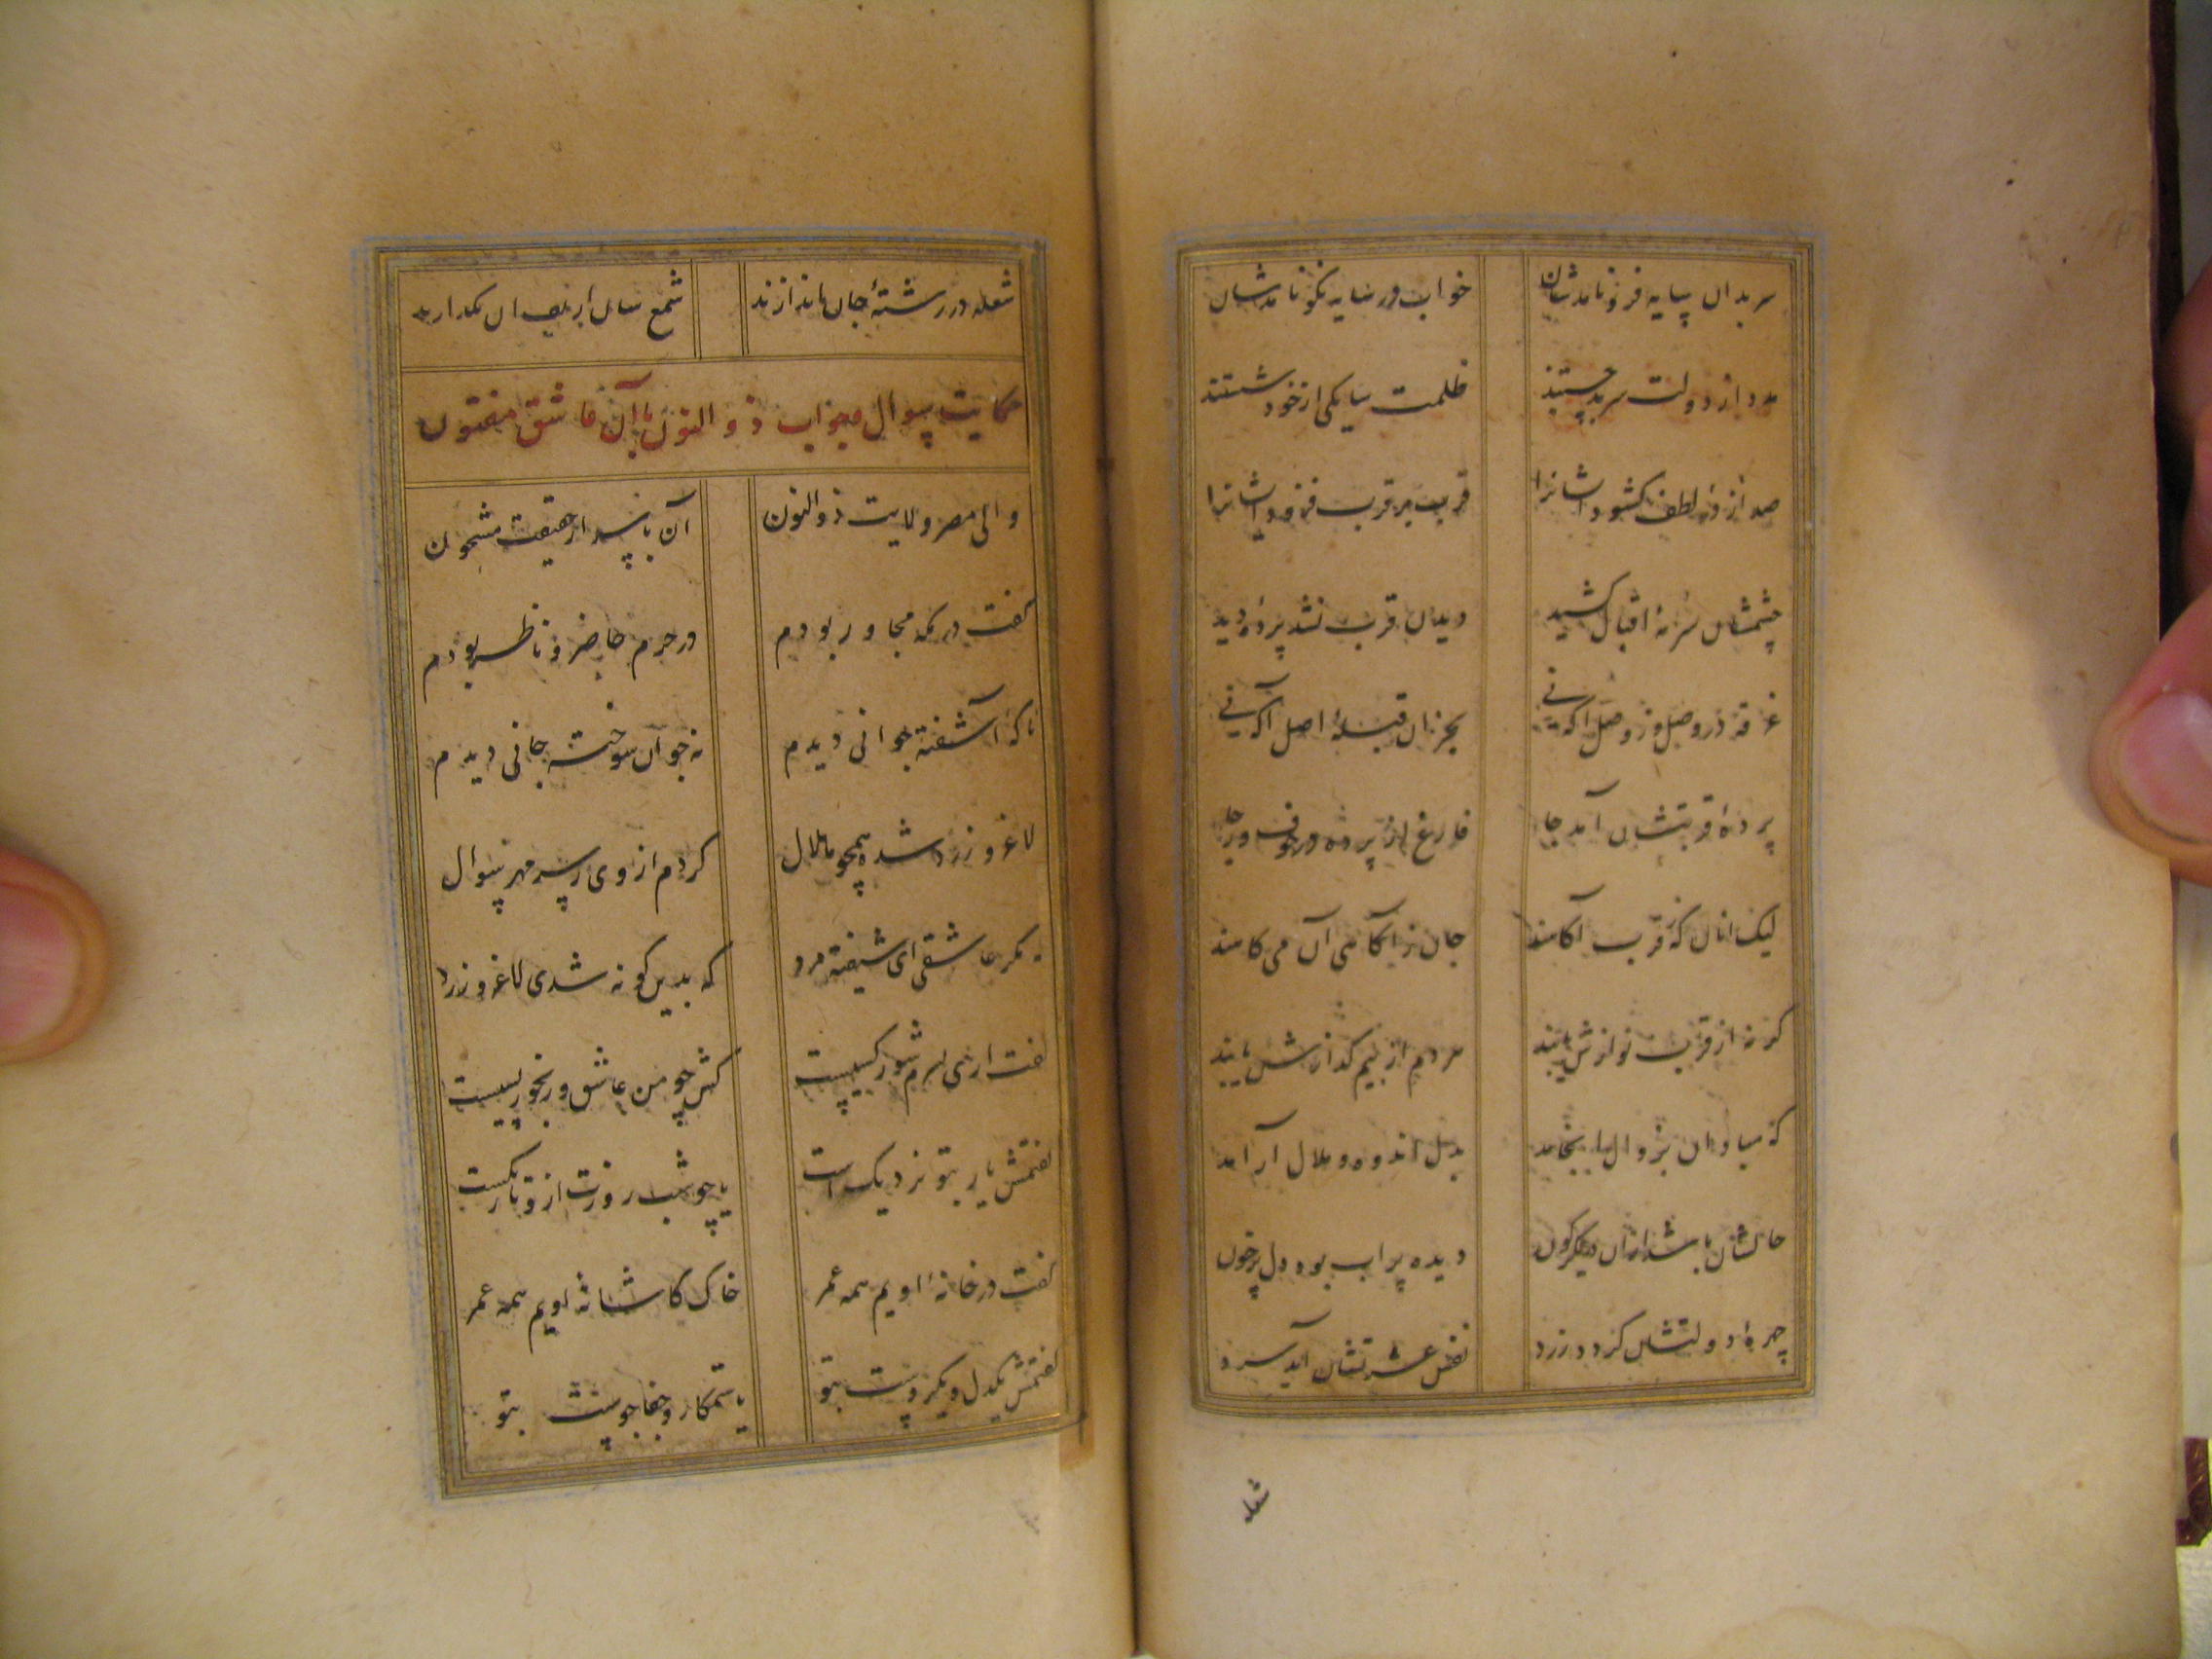 سر بدان سایه فرو نامدشان خواب در سایه نکو نامدشان
مدد از دولت سرمد جستند ظلمت سایگی از خود شستند
صد در از لطف کشود ایشانرا قرب بر قرب فزود ایشانرا
چشمشان سرمهٔ اقبال کشید دیدن قرب نشد پردهٔ دید
غرقه در وصل و ز وصل آکه نی بجز ان قبلهٔ اصل آکه نی
پردهٔ قربتشان آمد جا فارغ از پرده در خوف و رجا
لیک انان که ز قرب آکاهند جان ز آکاهی آن می کاهند
کر نه از قرب نوازش یابند هر دم از بیم کدازش یابند
که مبادا ان بزوال انجامد بدل اندوه و ملال آرامد
حالشان باشد ازان دیکرکون دیده پراب بود دل پرخون
چهرهٔ دولتشان کردد زرد نفس عشرتشان اید سرد
شعله
شعله در رشتهٔ جان اندازند شمع سان
حکایت سوال و جواب ذوالنون با آن عاشق مفتون
والی مصر ولایت ذوالنون آن باسرار حقیقت مشحون
کفت در مکه مجاور بودم در حرم حاضر و ناظر بودم
ناکه آشفته جوانی دیدم نه جوان سوخته جانی دیدم
لاغر و زرد شده همچو هلال کردم از وی ز سر مهر سوال
که مکر عاشقی ای شیفته مرد که بدین کونه شدی لاغر و زرد
کفت اری بسرم شور کسیست کش چو من عاشق و رنجور بسیست
کفتمش یار بتو نزدیک است یا چو شب روزت ازو تاریکست
کفت در خانهٔ اویم همه عمر خاک کاشانهٔ اویم همه عمر
کفتمش یکدل و یکروست بتو یا ستمکار و جفاجوست بتو